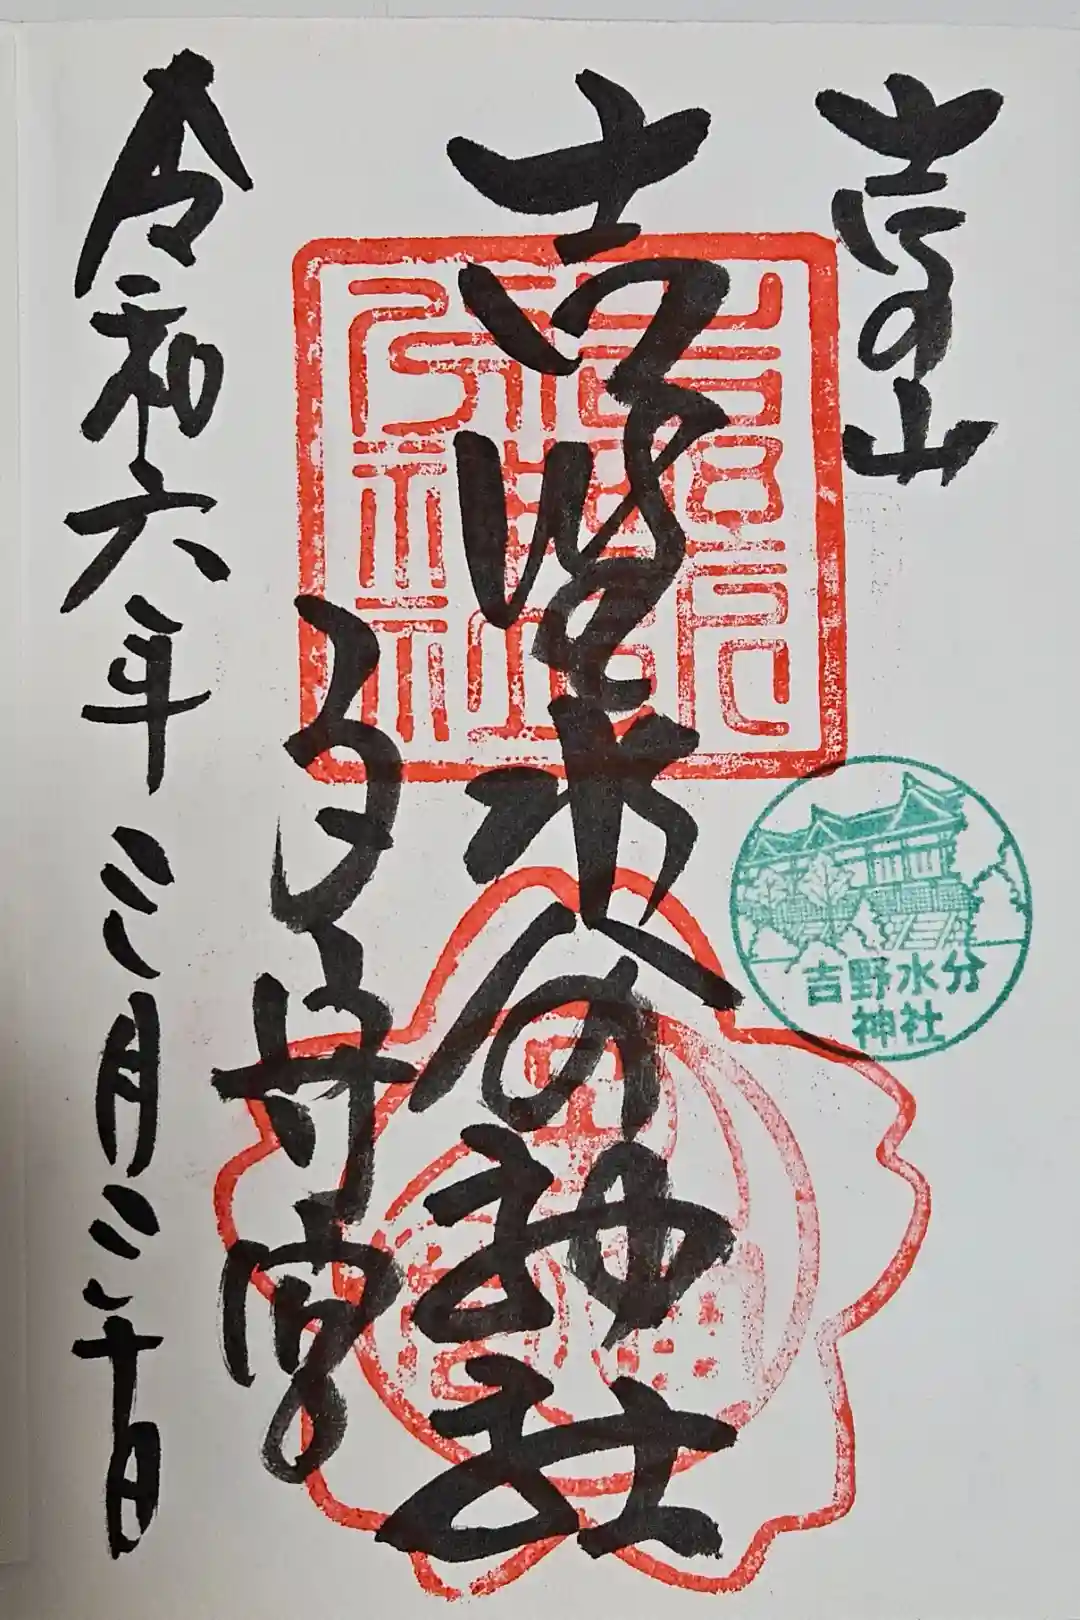 吉野山
吉野水分神社
子守宮
令和六年三月三十日
吉野水分
神社